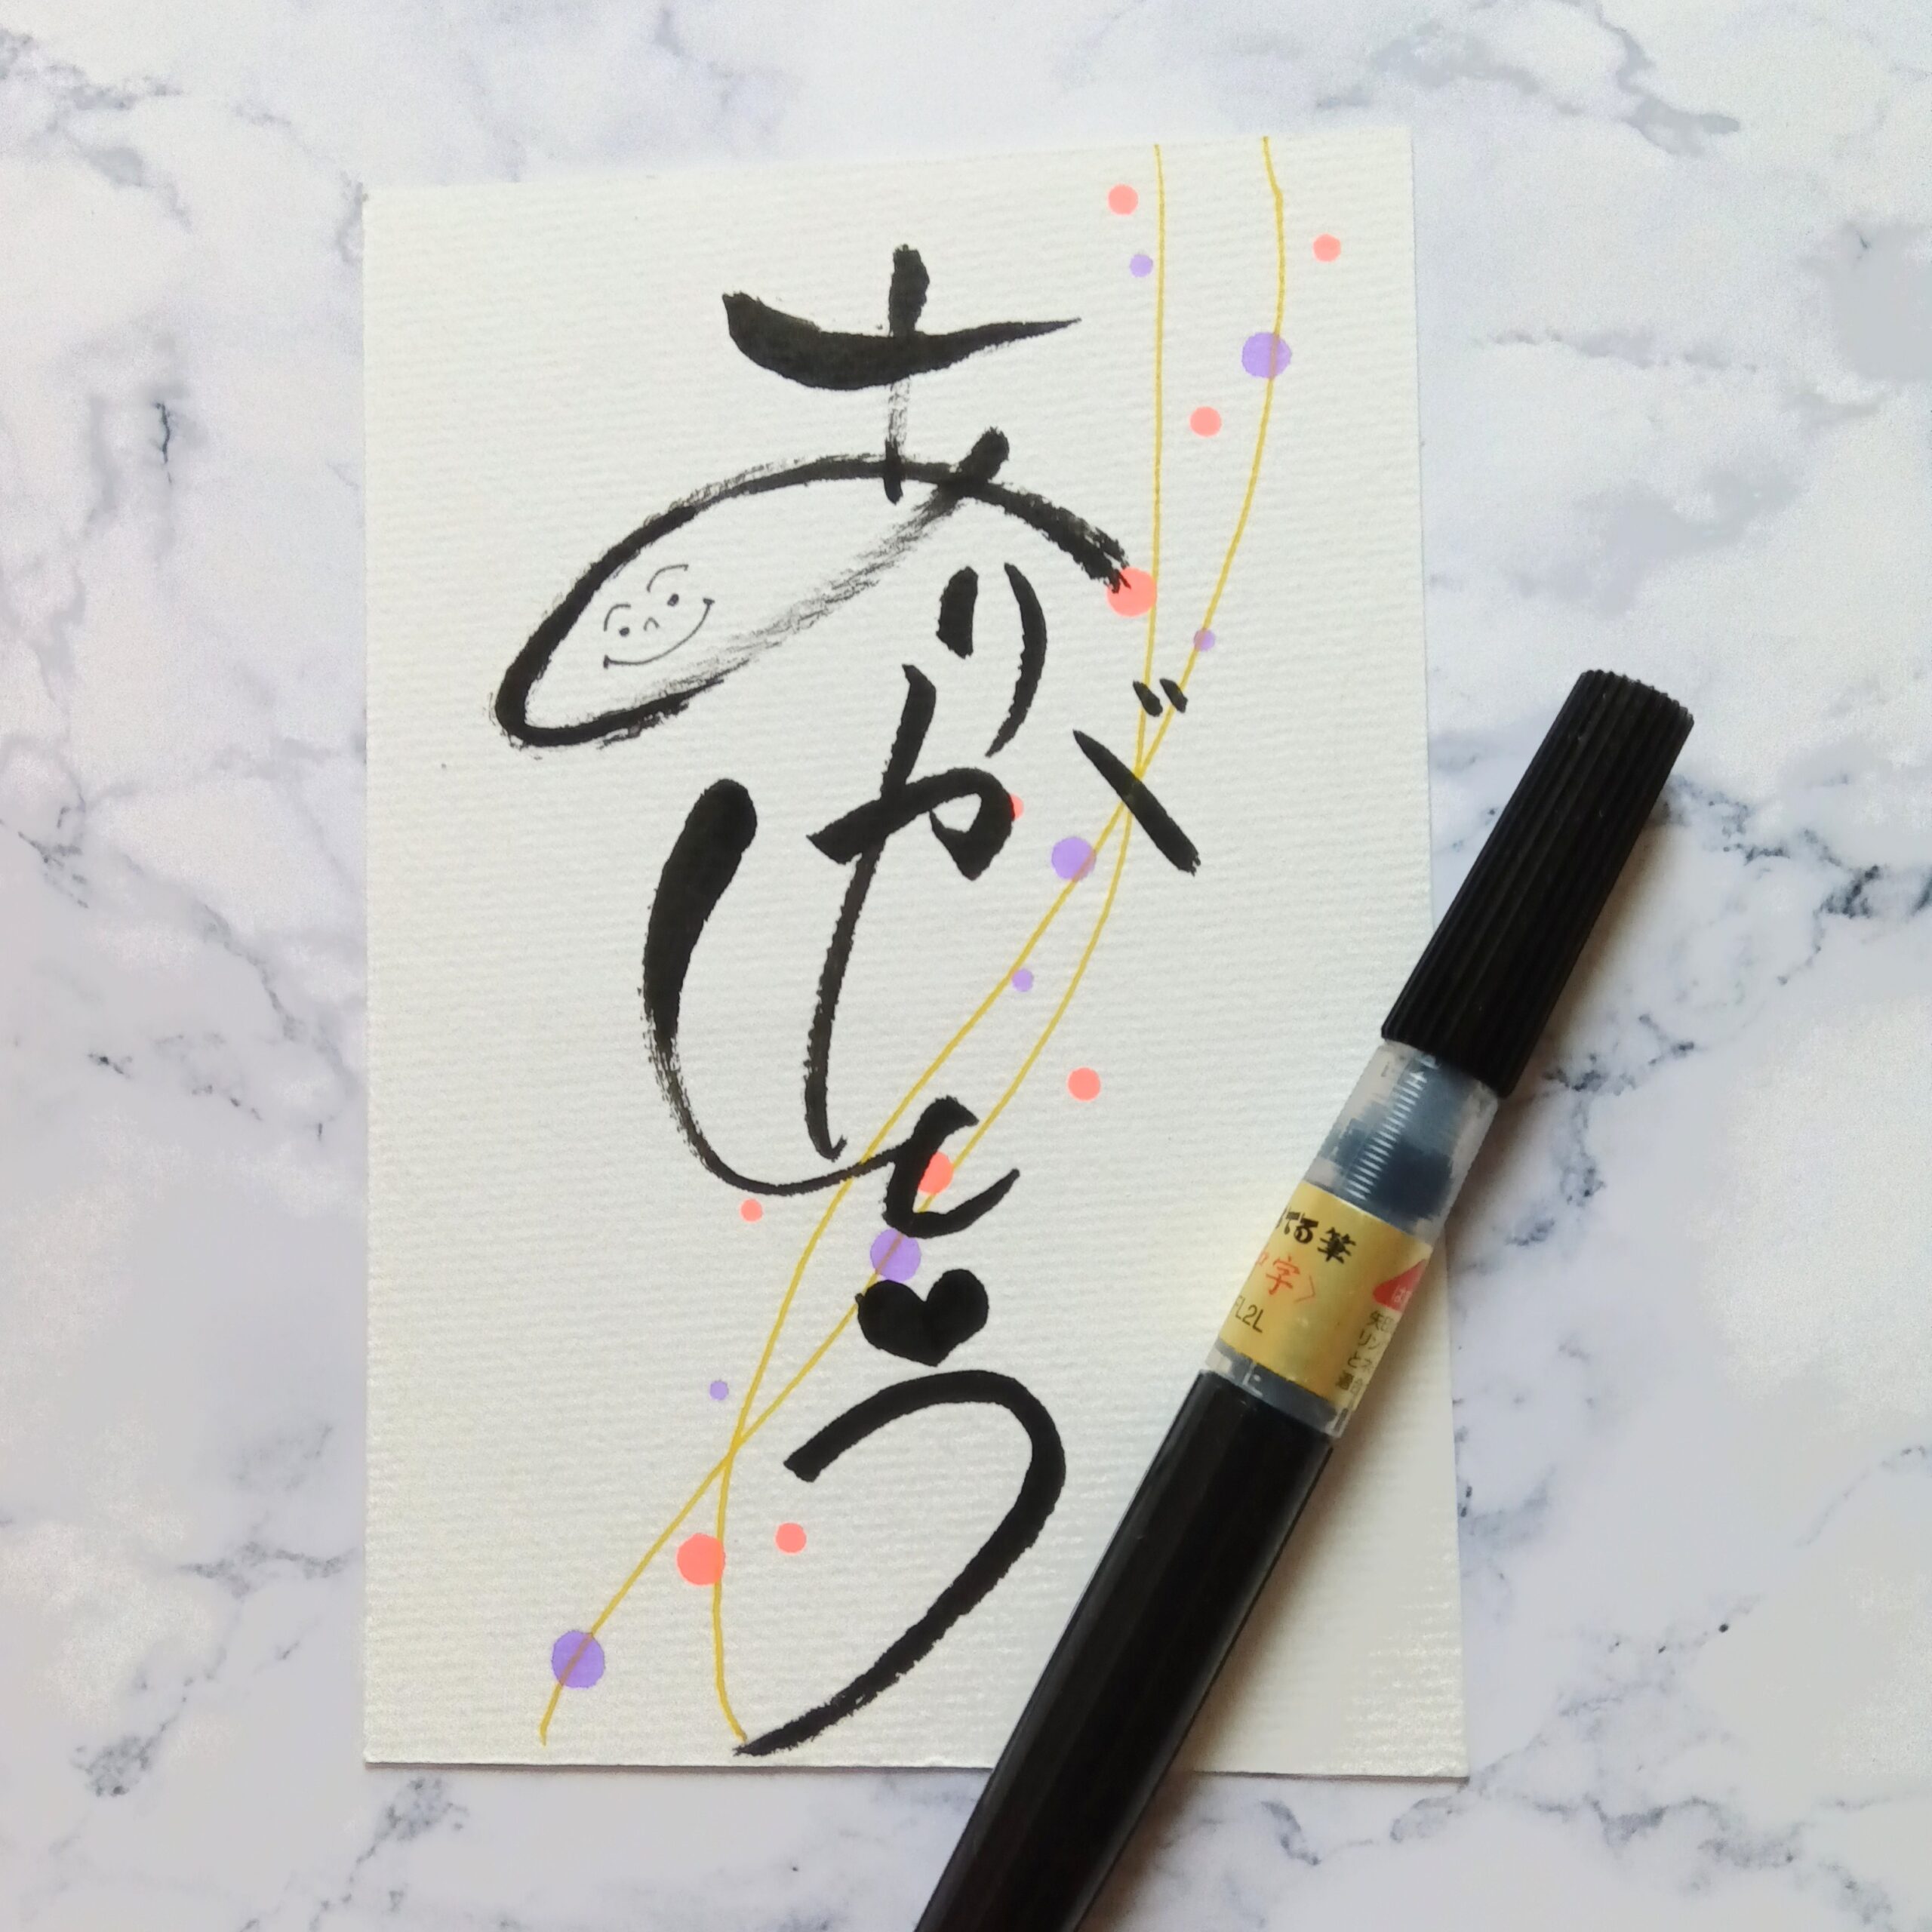 ありがとう
てる筆
字〉
FL2L